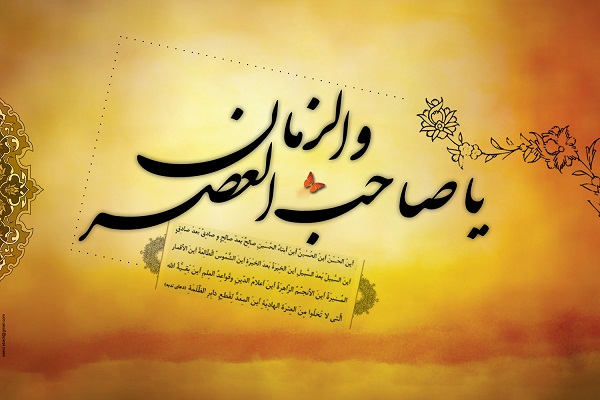 یا صاحب العصر
والزمان
أینَ الحَسَنُ أینَ الحُسَینُ أینَ أبناءُ الحُسَینِ صالِحٌ بَعدَ صالِحٍ و صادِقٌ بَعدَ صادِقٍ
أینَ السَبیلُ بَعدَ السَبیلِ أینَ الخِیَرَةُ بَعدَ الخِیَرَةِ أینَ الشُمُوسُ الطالِعَةُ أینَ الأقمارُ
المُنیرَةُ أینَ الأنجُمُ الزاهِرَةُ أینَ أعلامُ الدّینِ وقَواعِدُ العِلمِ أینَ بَقِیَّةُ اللهِ
الَّتی لا تَخلُوا مِنَ العِترَةِ الهادِیَةِ أینَ المُعَدُّ لِقَطعِ دابِرِ الظَّلَمَةِ (دعای ندبه)